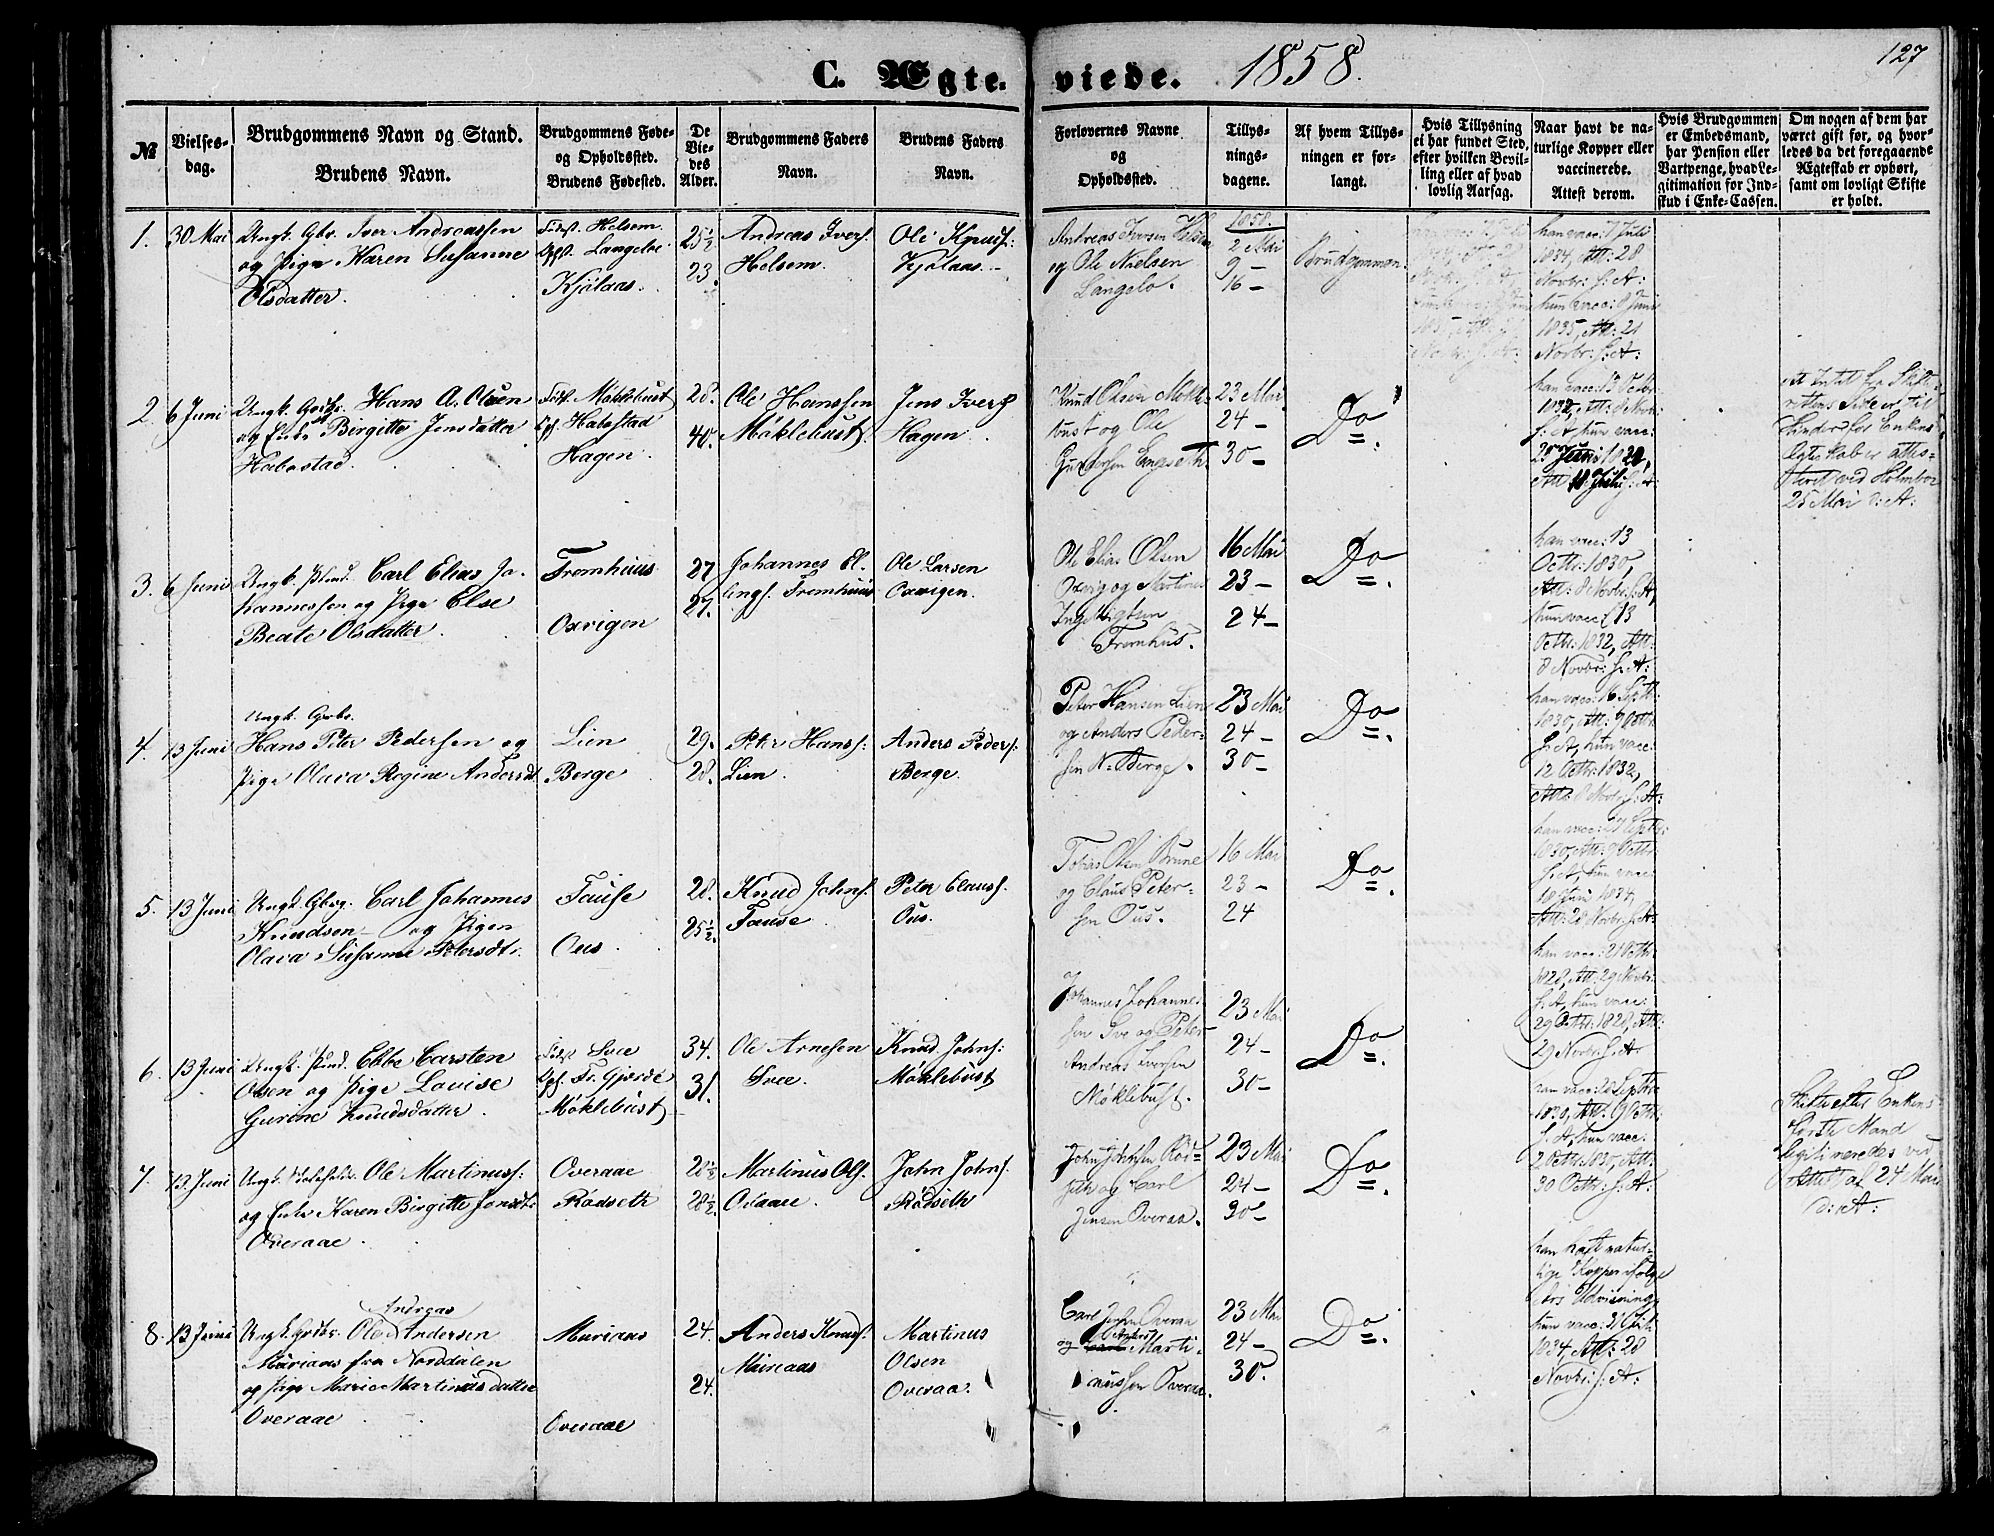 127
C. Ægteviede. 1858.
№
Vielsesdag.
Brudgommens Navn og Stand.
Brudens Navn.
Brudgommens Føde- og Opholdssted.
Brudens Fødested.
De Viedes Alder.
Brudgommens Faders Navn.
Brudens Faders Navn.
Forlovernes Navne og Opholdssted.
Tillysningsdagene.
Af hvem Tillysningen er forlangt.
Hvis Tillysning ei har fundet Sted, efter hvilken Bevilling eller af hvad lovlig Aarsag.
Naar havt de naturlige Kopper eller vaccinerede. Attest derom.
Hvis Brudgommen er Embedsmand, har Pension eller Vartpenge, hvad Legitimation for Indskud i Enke-Cassen.
Om nogen af dem har været gift før, og hvorledes da det foregaaende Ægteskab er ophørt, samt om lovligt Skifte er holdt.
1. 30 Mai
Ungk. Gbr. Iver Andreassen
og Pige Karen Susanne
Olsdatter.
Føds. Helsem
Langeloe
Kjölaas.
25½
23.
Andreas Ivers.
Helsem.
Ole Knuds:
Kjölaas.
Andreas Iversen Helsem
og Ole Nielsen
Langelo.
1858.
2 Mai
9 –
16 –
Brudgommen.
han vacc: 7 Juli
1834, Att: 28
Novbr: f: A:
hun vacc: 8 Juni
1835, Att: 21
Novbr: f: A:
2. 6 Juni
Hans A. Olsen
og Enke Birgitte Jensdatter
Habostad.
Føds. Möklebust
Habostad
Hagen.
28.
40.
Ole Hanssen
Möklebust
Jens Ivers
Hagen.
Knud Olsen Mökle-
bust og Ole
Engeseth.
23 Mai
24 –
30 –
Do.
han vacc: 13 Octbr:
1832, Att: 8 Novbr:
f: A, hun vacc:
25 Mai d: A:
3. 6 Juni
Carl Elias Jo-
hannessen og Pige Else
Beate Olsdatter.
Fremhuus
Oxvigen
27
27.
Johannes El-
lings. Fremhuus
Ole Larsen
Oxvigen.
Ole Elias Olsen
Oxvig og Martinus
Fremhus.
16 Mai
23 –
24 –
Do.
han vacc: 13
Octbr: 1830,
Att: 8 Novbr: f: A,
hun vacc: 13
Octbr: 1832, Att:
8 Novbr: f: A:
4. 13 Juni
Ungk. Gbr.
Hans Peter Pedersen og
Pige Olava Regine Andersdt.
Lien
Berge
29.
28.
Peter Hanss:
Lien.
Anders Peders:
Berge.
Peter Hansen Lien
og Anders Peder-
sen N: Berge.
23 Mai
24 –
30 –
Do.
han vacc: 16 Sept:
1830, Att: 9 Octbr:
f: A, hun vacc:
12 Octbr: 1832,
Att: 8 Novbr: f: A:
5. 13 Juni
Carl Johannes
Knudsen – og Pigen
Olava Susanne Petersdt.
Fause
Ous.
28.
25½.
Knud Johns.
Fause
Peter Clauss.
Ous.
Tobias Olsen Brune
og Claus Peter-
sen Ous.
16 Mai
23 –
24
Do.
1830, Att: 9 Octbr:
f: A, hun vacc:
18 Juni 1834,
Att: 28 Novbr: f: A:
6. 13 Juni
Ebbe Carsten
Olsen og Pige Lovise
Gurine Knudsdatter.
Føds. Svee
Gjærde
Möklebust
34.
31.
Ole Arnesen
Svee.
Knud Johns:
Möklebust
Johannes Johannes-
sen Sve og Peter
Andreas Iversen
Möklebust.
23 Mai
24 –
30 –
Do.
han vacc: 21 Octbr:
1828, Att: 29 Novbr:
f: A, hun vacc:
29 Octbr: 1828, Att:
29 Novbr: f: A:
7. 13. Juni
Ole Martinuss:
og Enke Karen Birgitte Jonsdt.
Overaae.
Overaae
Rödseth
28½
28½
Martinus Ols.
Overaae
John Johns.
Rödseth
John Johnsen Röd-
seth og Carl
Jensen Overaa.
23 Mai
24 –
30 –
Do.
1830, Att: 9 Octbr:
f: A, hun vacc:
2 Octbr: 1830, Att:
30 Octbr: f: A:
Skifte efter Enkens
første Mand
legitimeredes ved
Attest af 24 Mai
d: A:
8. 13 Juni
Andreas
Ole Andersen
Muriaas fra Norddalen
og Pige Marie Martinusdatter
Overaae
Muriaas
Overaae
24.
24.
Anders Knuds.
Muriaas
Martinus
Olsen
Overaa.
Carl Jensen Overaa
og Anders Marti-
nussen Overaa.
23 Mai
24 –
30.
Do.
han haft natur-
lige Kopper ifölge
Ars Udvisning,
hun vacc:
1834, Att: 28
Novbr: f: A: